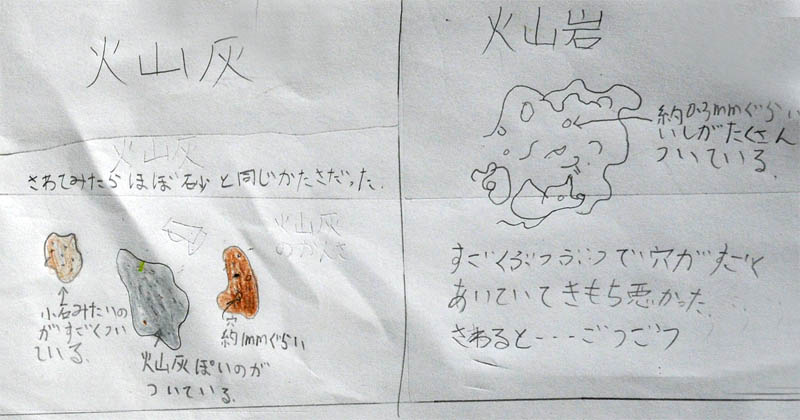 火山灰
火山灰
さわてみたらほぼ砂と同じかたさだった.
火山灰
のかんさ
小石みたいの
がすごくつい
ている.
火山灰ぽいのが
ついている.
穴
約1mmぐらい
火山岩
約0.3mmぐらい
いしがたくさん
ついている.
すごくぶつぶつで穴がすごく
あいていてきもち悪かった.
さわると---ごつごつ